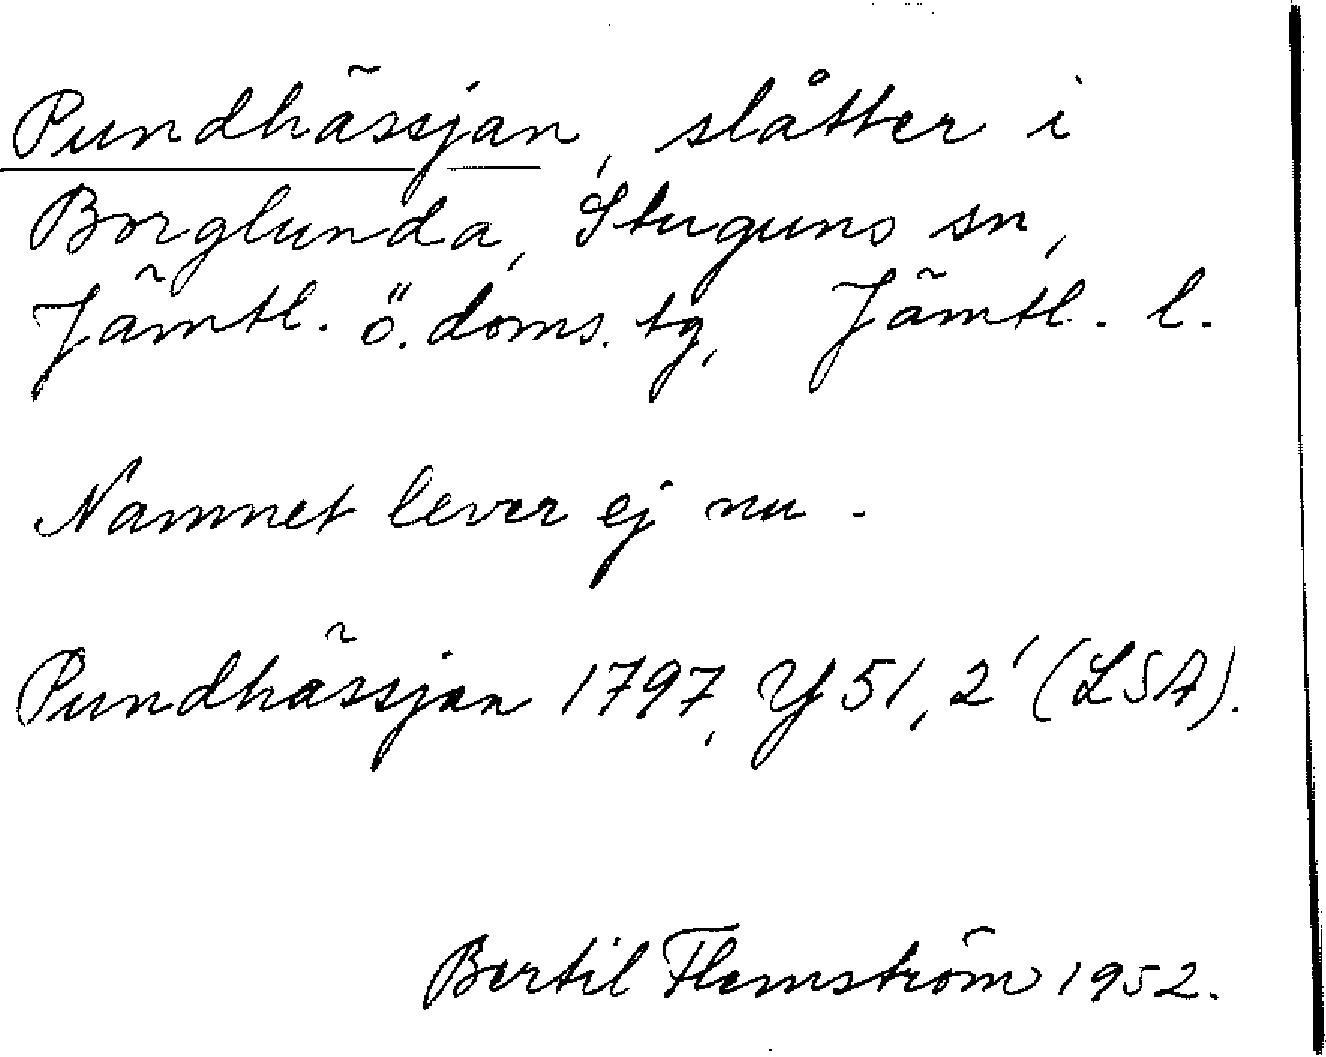 Pundhässjan, slåtter i
Borglunda, Stuguns sn,
Jämtl. ö. doms. tg, Jämtl. l.
Namnet lever ej nu.
Pundhässjan 1797, Y 51, 2' (LSA).
Bertil Flemström 1952.